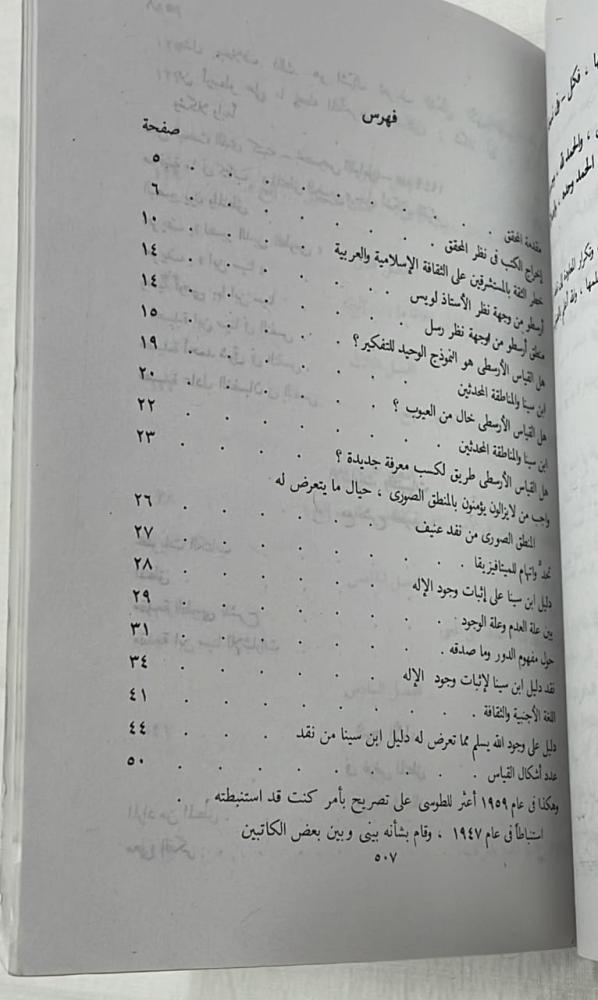 فهرس
صفحة
مقدمة المحقق . . . . . . . . . ٥
إخراج الكتب فى نظر المحقق . . . . . . ٦
خطر الثقة بالمستشرقين على الثقافة الإسلامية والعربية . . . ١٠
أرسطو من وجهة نظر الأستاذ لويس . . . . . ١٤
منطق أرسطو من وجهة نظر رسل . . . . . ١٤
هل القياس الأرسطى هو النموذج الوحيد للتفكير ؟ . . . ١٥
ابن سينا والمناطقة المحدثين . . . . . . . ١٩
هل القياس الأرسطى خال من العيوب ؟ . . . . . ٢٠
ابن سينا والمناطقة المحدثين . . . . . . . ٢٢
هل القياس الأرسطى طريق لكسب معرفة جديدة ؟ . . . ٢٣
واجب من لا يزالون يؤمنون بالمنطق الصورى ، حيال ما يتعرض له
المنطق الصورى من نقد عنيف . . . . . . ٢٦
تحد واتهام للميتافيزيقا . . . . . . . ٢٧
دليل ابن سينا على إثبات وجود الإله . . . . . ٢٨
بين علة العدم وعلة الوجود . . . . . . . ٢٩
حول مفهوم الدور وما صدقه . . . . . . . ٣١
نقد دليل ابن سينا لإثبات وجود الإله . . . . . ٣٤
اللغة الأجنبية والثقافة . . . . . . . ٤١
دليل على وجود الله يسلم مما تعرض له دليل ابن سينا من نقد . . ٤٤
عدد أشكال القياس . . . . . . . . ٥٠
وهكذا فى عام ١٩٥٩ أعثر للطوسى على تصريح بأمر كنت قد استنبطته .
استنباطاً فى عام ١٩٤٧ ، وقام بشأنه بينى وبين بعض الكاتبين
٥٠٧